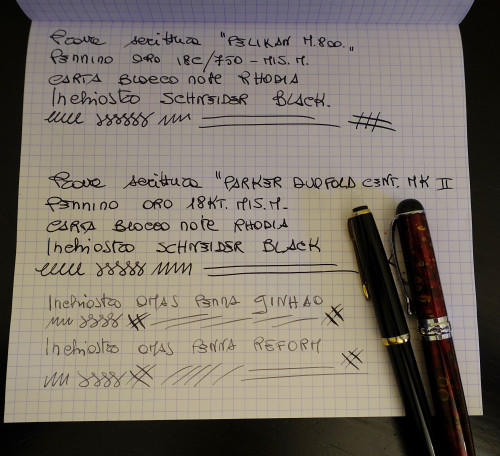 Prove scrittura "PELIKAN M.800."
PENNINO ORO 18C/750 - MIS. M.
CARTA BLOCCO NOTE RHODIA
INCHIOSTRO SCHNEIDER BLACK.
Prove scrittura "PARKER DUOFOLD CENT. MK II
PENNINO ORO 18KT. MIS. M.
CARTA BLOCCO NOTE RHODIA
INCHIOSTRO SCHNEIDER BLACK
INCHIOSTRO OMAS PENNA JINHAO
INCHIOSTRO OMAS PENNA REFORM